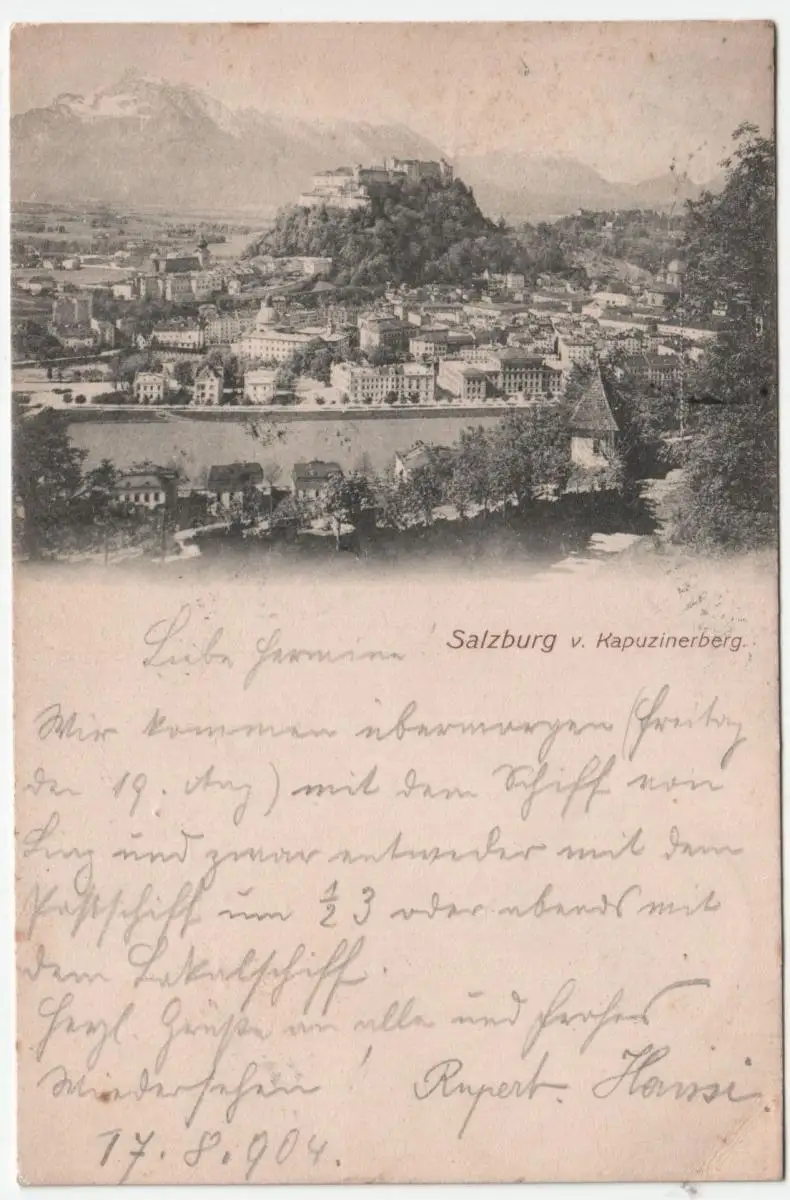 Salzburg v. Kapuzinerberg.
Liebe Hermine!
Wir kommen übermorgen (Freitag
den 19. Aug) mit dem Schiff von
Linz und zwar entweder mit dem
Postschiff um ½ 3 oder abends mit
dem Lokalschiff.
Herzl. Grüße an alle und frohes
Wiedersehen! Rupert. Hansi.
17. 8. 904.